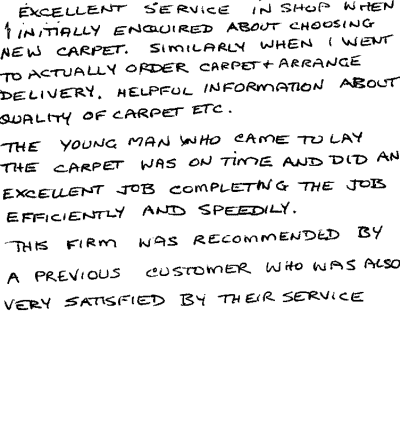 EXCELLENT SERVICE IN SHOP WHEN
I INITIALLY ENQUIRED ABOUT CHOOSING
NEW CARPET. SIMILARLY WHEN I WENT
TO ACTUALLY ORDER CARPET + ARRANGE
DELIVERY. HELPFUL INFORMATION ABOUT
QUALITY OF CARPET ETC.
THE YOUNG MAN WHO CAME TO LAY
THE CARPET WAS ON TIME AND DID AN
EXCELLENT JOB COMPLETING THE JOB
EFFICIENTLY AND SPEEDILY.
THIS FIRM WAS RECOMMENDED BY
A PREVIOUS CUSTOMER WHO WAS ALSO
VERY SATISFIED BY THEIR SERVICE